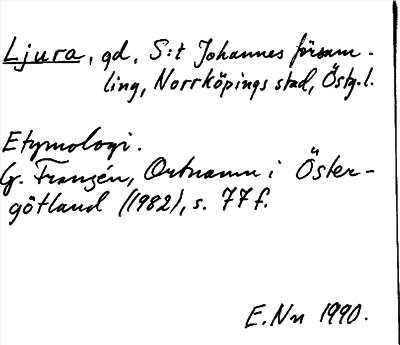 Ljura, gd, S:t Johannes försam-
ling, Norrköpings stad, Östg.l.
Etymologi.
G. Franzén, Ortnamn i Öster-
götland (1982), s. 77 f.
E. Nn 1990.